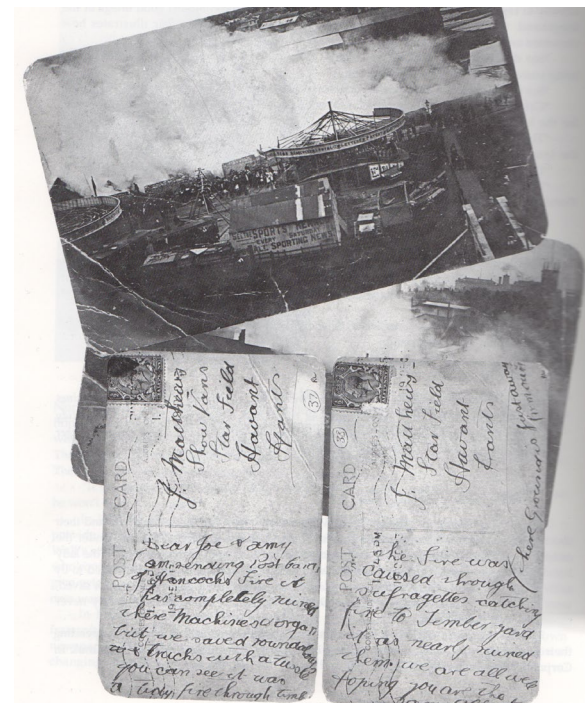 SPORTS
EVERY SATURDAY
SPORTING NEWS
POST CARD
J. Matthews
Show Vans
Star Field
Havant
Hants
32
Dear Joe & Amy
am sending Post Card
of Hancocks Fire it
has completely ruined
there Machines & organ
but we saved
trucks with a
you can see it was
a tidy fire through
POST CARD
J. Matthews
Star Field
Havant
Hants
32
The Fire was
caused through
sufragettes catching
fire to Timber yard
it as nearly ruined
them we are all well
foping you are the